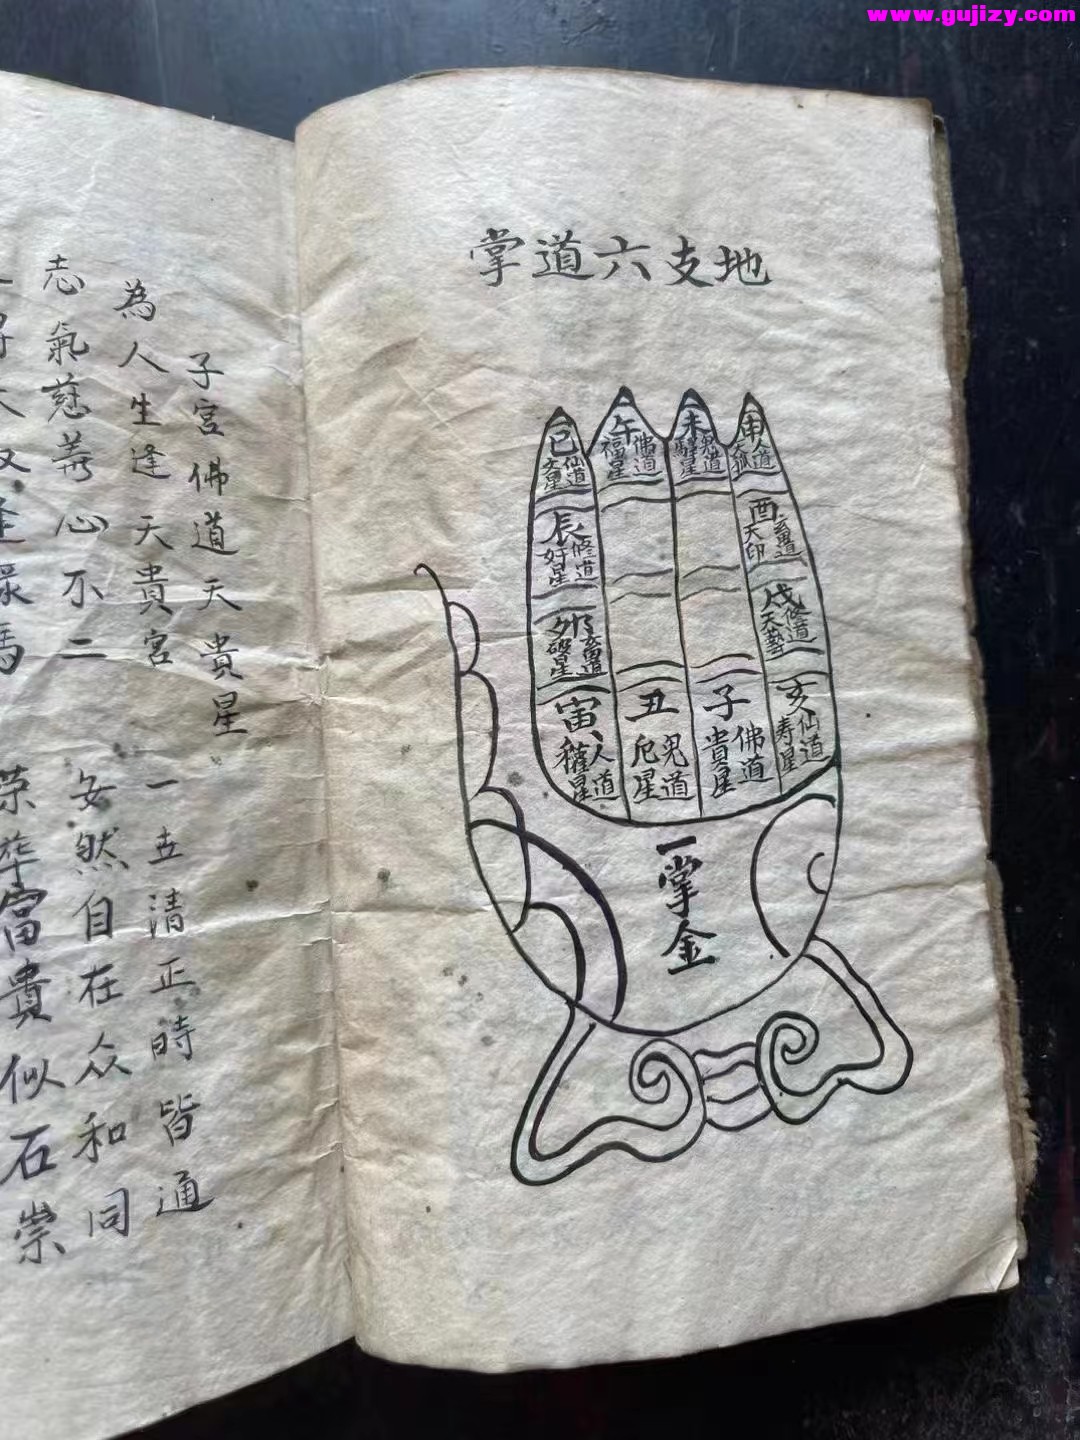 www.gujizy.com
地支六道掌
巳
仙道
文星
午
佛道
福星
未
鬼道
驛星
申
人道
孤
酉
畜道
天印
辰
修道
奸星
戌
修道
天藝
卯
畜道
破星
寅
人道
權星
丑
鬼道
厄星
子
佛道
貴星
亥
仙道
壽星
一掌金
子宮佛道天貴星
為人生逢天貴宮 一去清正時皆通
志氣慈善心不二 安然自在众和同
榮華富貴似石崇